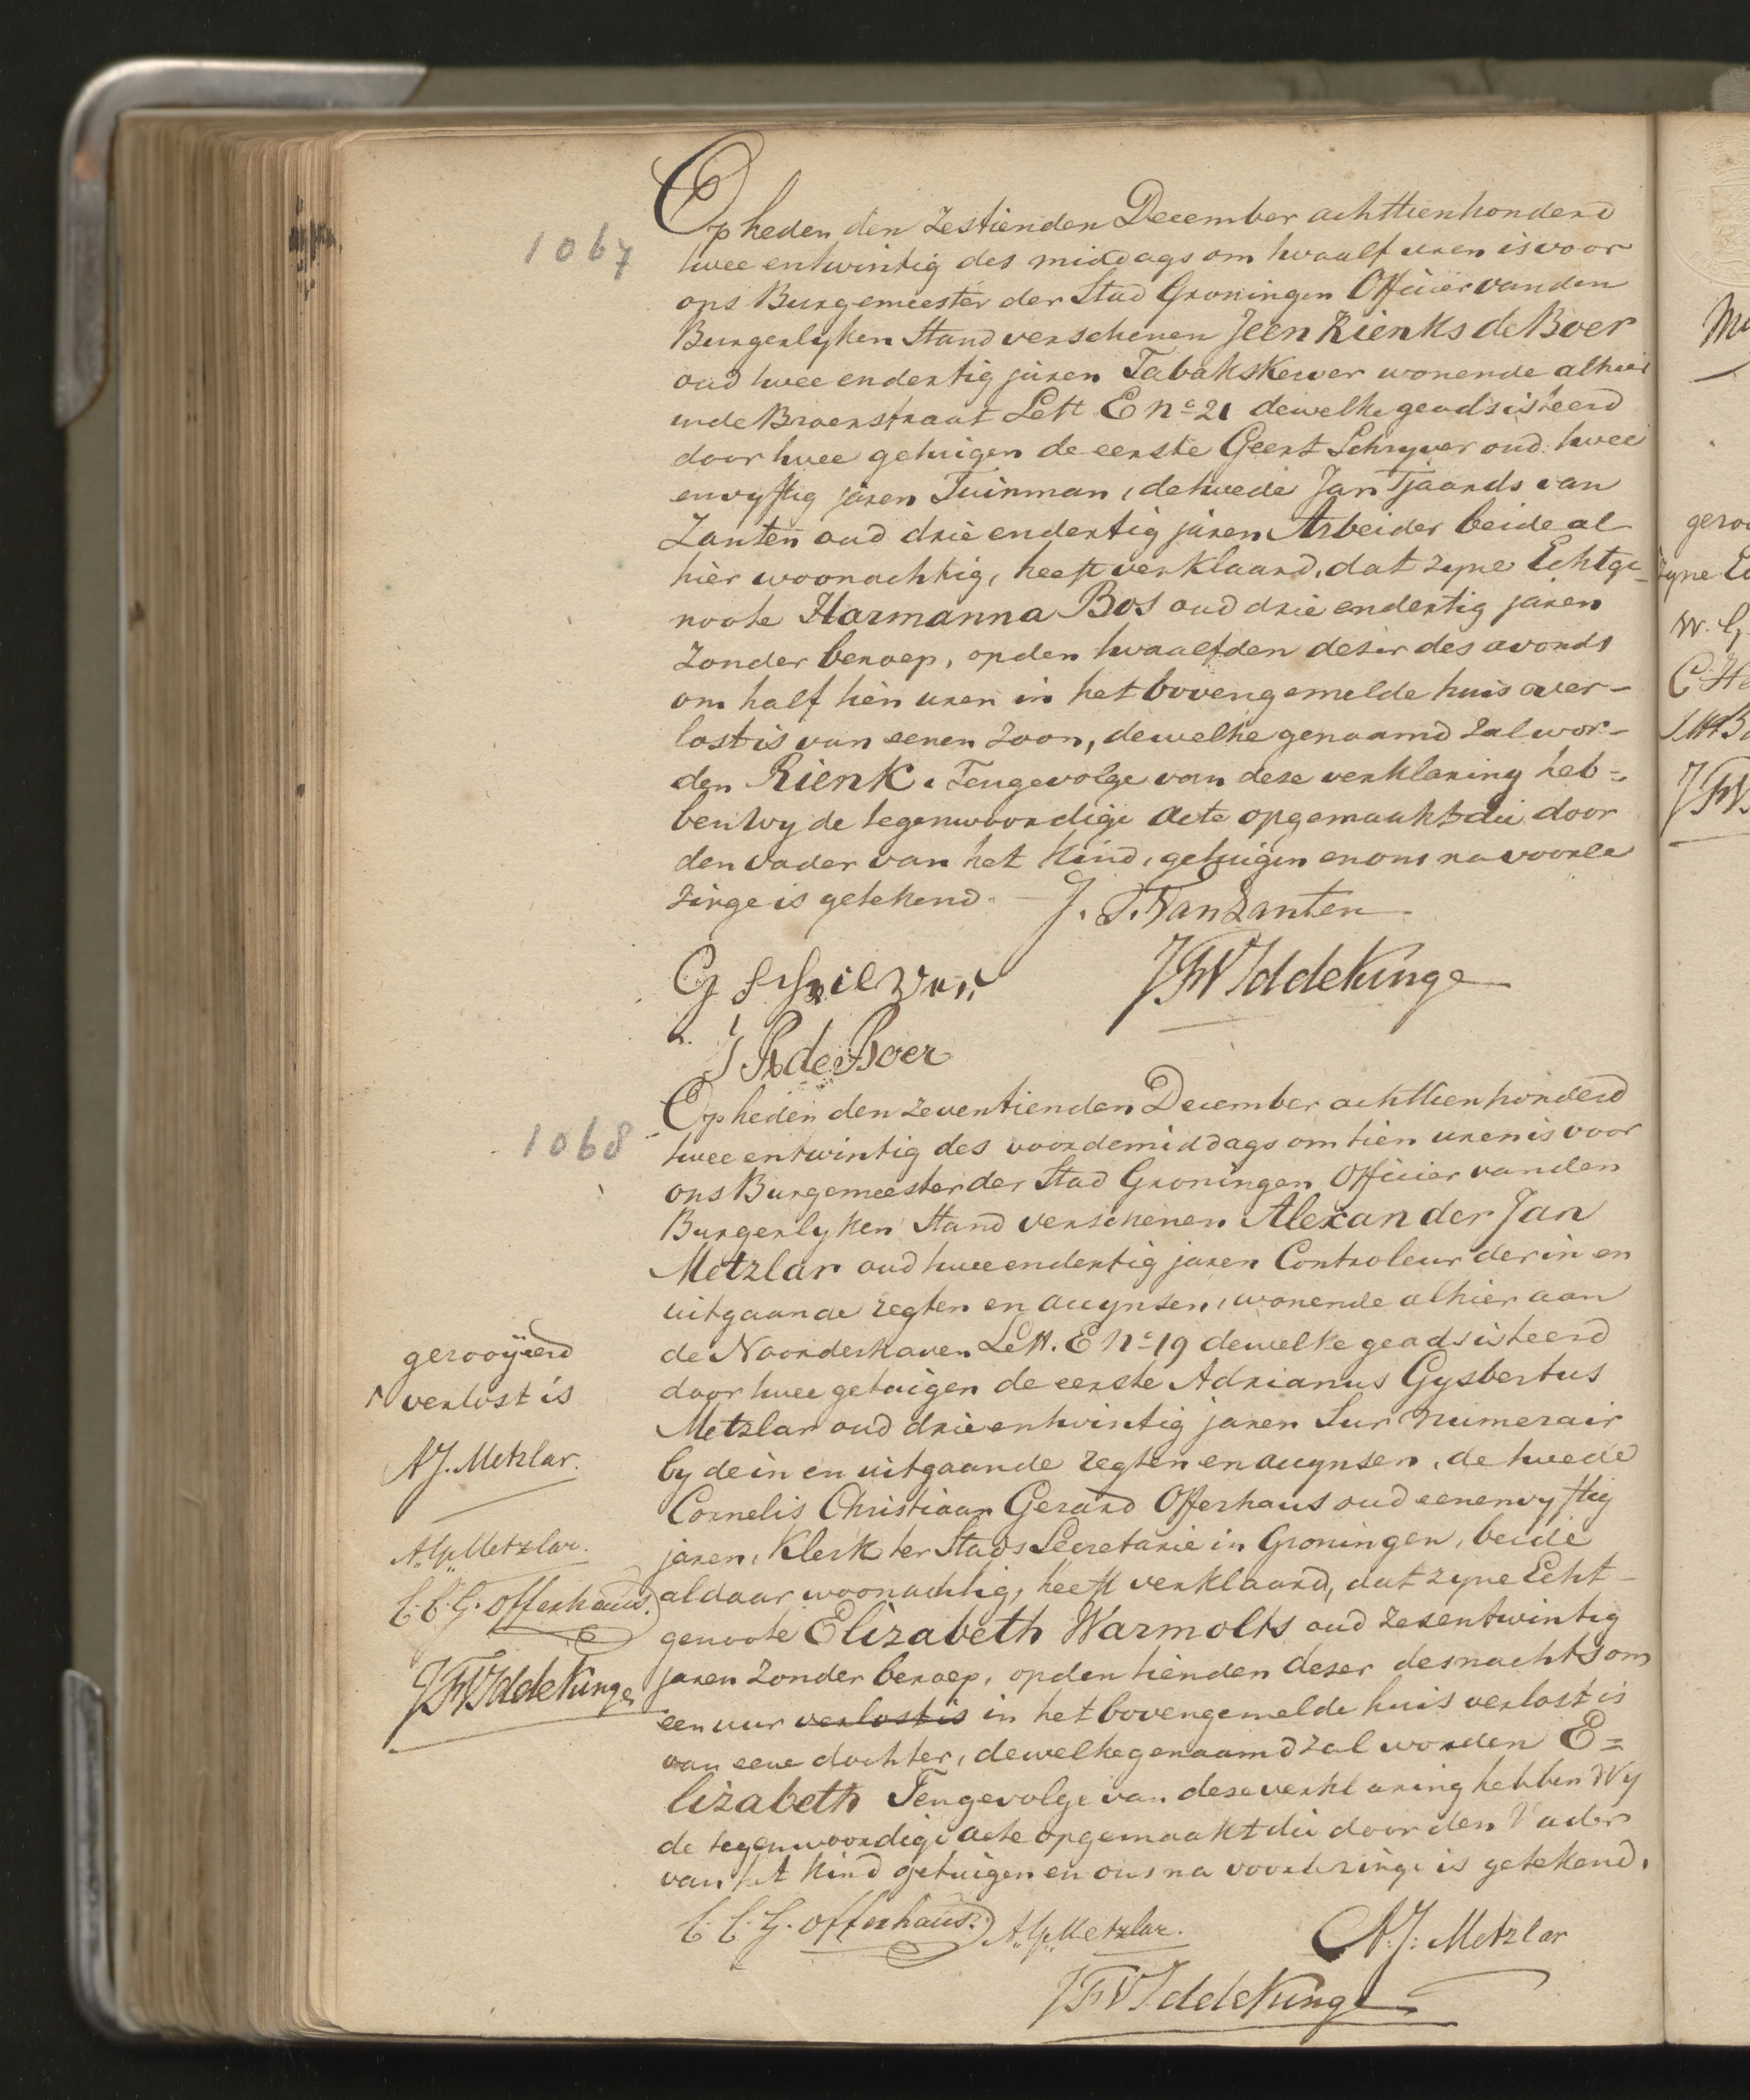 1067
Op heden den zestienden December achttienhonderd
twee en twintig des middags om twaalf uren is voor
ons Burgemeester der Stad Groningen Officier van den
Burgerlyken Stand verschenen Jeen Rienks de Boer
oud twee en dertig jaren Tabakskerver wonende alhier
in de Broerstraat Lett E no 21 dewelke geadsisteerd
door twee getuigen de eerste Geert Schryver oud twee
en vyftig jaren Tuinman, de twede Jan Tjaards van
Zanten oud drie en dertig jaren Arbeider beide al
hier woonachtig, heeft verklaard, dat zyne Echtge-
noote Harmanna Bos oud drie en dertig jaren
zonder beroep, op den twaalfden dezer des avonds
om half tien uren in het bovengemelde huis ver-
lost is van eenen zoon, dewelke genaamd zal wor-
den Rienk. Tengevolge van deze verklaring heb-
ben Wy de tegenwoordige acte opgemaakt die door
den vader van het kind, getuigen en ons na voorle
zinge is getekend.
J. T. Van Zanten
G schriever
JFVIddekinge
J R de Boer
1068
Op heden den zeventienden December achttienhonderd
twee en twintig des voordemiddags om tien uren is voor
ons Burgemeester der Stad Groningen Officier van den
Burgerlyken Stand verschenen Alexander Jan
Metzlar oud twee en dertig jaren Controleur der in en
uitgaande regten en accynsen, wonende alhier aan
de Noorderhaven Lett. E no 19 dewelke geadsisteerd
door twee getuigen de eerste Adrianus Gysbertus
Metzlar oud drie en twintig jaren Surnumerair
by de in en uitgaande regten en accynsen, de twede
Cornelis Christiaan Gerard Offerhaus oud een en vyftig
jaren, Klerk ter Stads Secretarie in Groningen, beide
aldaar woonachtig, heeft verklaard, dat zyne Echt-
genoote Elizabeth Warmolts oud zes en twintig
jaren zonder beroep, op den tienden dezer des nachts om
een uur verlost is in het bovengemelde huis verlost is
van eene dochter, dewelke genaamd zal worden E=
lizabeth Tengevolge van deze verklaring hebben Wy
de tegenwoordige acte opgemaakt die door den Vader
van het kind getuigen en ons na voorlezinge is getekend.
C. C. G. Offerhaus. A. G. Metzlar. A. J. Metzlar
JFVIddekinge
gerooyeerd
verlost is
A J. Metzlar.
A. G. Metzlar.
C. C. G. Offerhaus.
JFVIddekinge